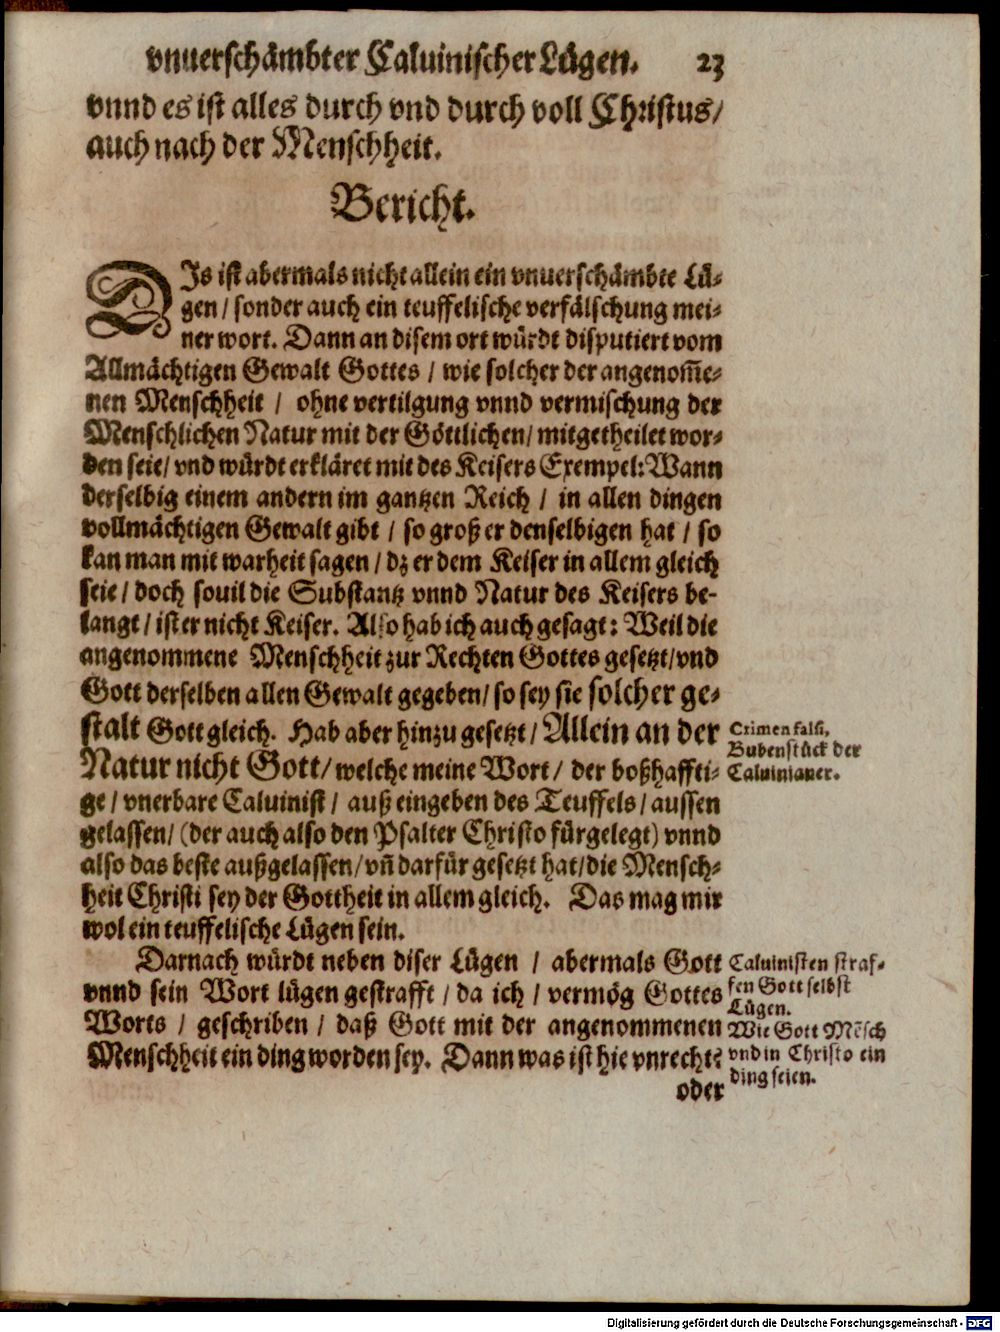 vnuerschämbter Caluinischer Lügen. 23
vnnd es ist alles durch vnd durch voll Christus/
auch nach der Menschheit.
Bericht.
DIs ist abermals nicht allein ein vnuerschämbte Lü-
gen / sonder auch ein teuffelische verfälschung mei-
ner wort. Dann an disem ort würdt disputiert vom
Allmächtigen Gewalt Gottes / wie solcher der angenom̃e-
nen Menschheit / ohne vertilgung vnnd vermischung der
Menschlichen Natur mit der Göttlichen/ mitgetheilet wor-
den seie/ vnd würdt erkläret mit des Keisers Exempel: Wann
derselbig einem andern im gantzen Reich / in allen dingen
vollmächtigen Gewalt gibt / so groß er denselbigen hat / so
kan man mit warheit sagen / dz er dem Keiser in allem gleich
seie / doch souil die Substantz vnnd Natur des Keisers be-
langt / ist er nicht Keiser. Also hab ich auch gesagt: Weil die
angenommene Menschheit zur Rechten Gottes gesetzt/vnd
Gott derselben allen Gewalt gegeben/ so sey sie solcher ge-
stalt Gott gleich. Hab aber hinzu gesetzt / Allein an der
Natur nicht Gott/ welche meine Wort / der boßhaffti-
ge / vnerbare Caluinist / auß eingeben des Teuffels / aussen
gelassen/ (der auch also den Psalter Christo fürgelegt) vnnd
also das beste außgelassen/ vn̄ darfür gesetzt hat/die Mensch-
heit Christi sey der Gottheit in allem gleich. Das mag mir
wol ein teuffelische Lügen sein.
Crimen falsi,
Bubenstück der
Caluinianer.
Darnach würdt neben diser Lügen / abermals Gott
vnnd sein Wort lügen gestrafft / da ich / vermög Gottes
Worts / geschriben / daß Gott mit der angenommenen
Menschheit ein ding worden sey. Dann was ist hie vnrecht?
oder
Caluinisten straf-
fen Gott selbst
Lügen.
Wie Gott Mēsch
vnd in Christo ein
ding seien.
Digitalisierung gefördert durch die Deutsche Forschungsgemeinschaft - DFG